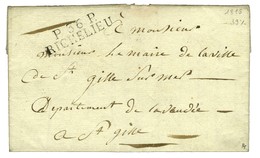 P. 36 P.
RICHELIEU
A monsieur
monsieur le maire de la ville
de St gille sur mer
Departement de la vendée
a St gille